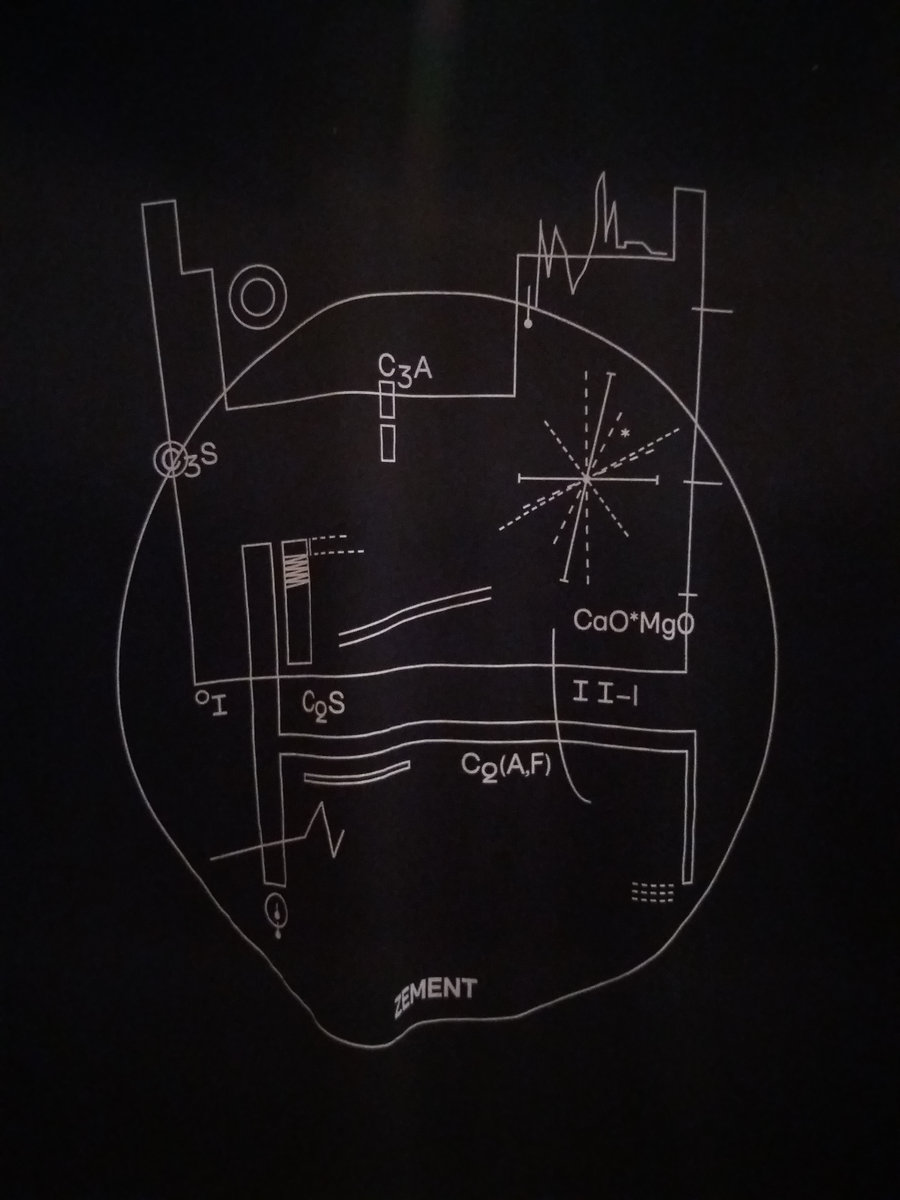 C₃A
C₃S
CaO*MgO
°I
C₂S
I I-I
C₂(A,F)
ZEMENT